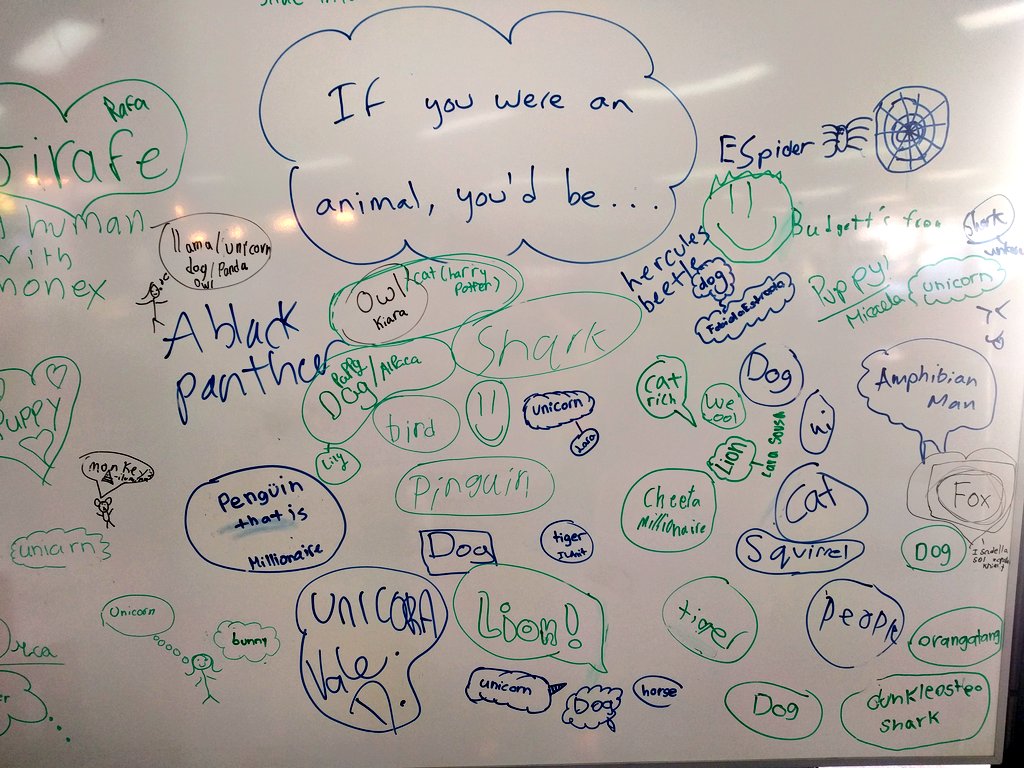 If you were an
animal, you'd be...
Rafa
Jirafe
human
with
monex
llama/unicorn
dog/Panda
Owl
A black
panther
Owl
Kiara
cat (harry
Potter)
Shark
Puppy
Dog/Alpaca
Lily
bird
unicorn
Lara
ESpider
hercules
beetle
dog
Fabiola Estrada
Budgett's frog
Shark
Puppy!
Micaela
unicorn
Amphibian
Man
Dog
cat
rich
We
cool
Lion
Lara Sousa
PUPPY
monkey
Pengüin
that is
Millionaire
Pinguin
Dog
tiger
Cheeta
Millionaire
Cat
Squirrel
Fox
Dog
unicarn
Unicorn
bunny
UNICORA
Vale.
Lion!
unicorn
Dog
horse
tiger
People
orangatang
Dog
dunkleosteo
shark
Orca